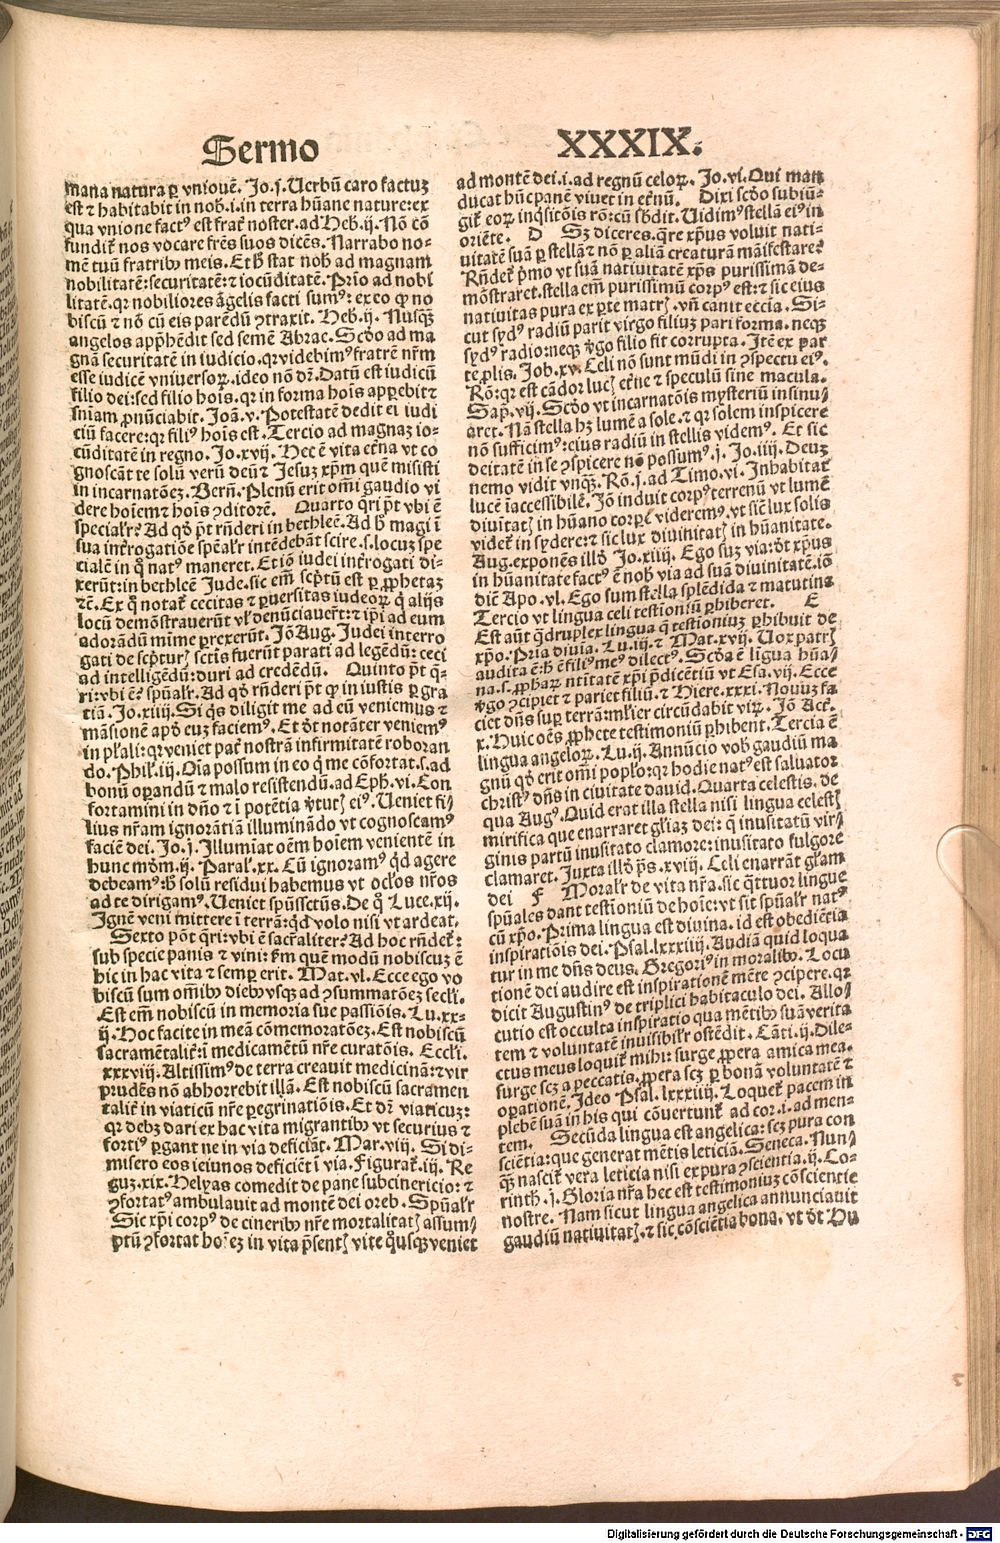 Sermo XXXIX.
mana natura ꝑ vnionē. Jo.j. Uerbū caro factuꝫ
est ⁊ habitabit in nob̄.i.in terra hūane nature: ex
qua vnione factꝰ est frat̄ noster. ad Heb̄.ij. Nō cō
fundit̄ nos vocare fr̄es suos dicēs. Narrabo no-
mē tuū fratribꝫ meis. Et h̄ stat nob̄ ad magnam
nobilitatē: securitatē: ⁊ iocūditatē. Prīo ad nobi
litatē. qꝛ nobiliores āgelis facti sumꝰ: ex eo ꝙ no
biscū ⁊ nō cū eis parēdū ꝯtraxit. Heb̄.ij. Nusqͣꝫ
angelos apphēdit sed semē Abrae. Scd̄o ad ma
gnā securitatē in iudicio. qꝛ videbimꝰ fratrē nr̄m
esse iudicē vniuersoꝝ. ideo nō dr̄. Datū est iudiciū
filio dei: sed filio hoīs. qꝛ in forma hoīs apꝑebit ⁊
sniam ꝓnūciabit. Joā.v. Potestatē dedit ei iudi
ciū facere: qꝛ filiꝰ hoīs est. Tercio ad magnaꝫ io-
cūditatē in regno. Jo.xvij. Hec ē vita et̄na vt co
gnoscāt te solū verū deū ⁊ Jesuꝫ xp̄m quē misisti
in incarnatōeꝫ. Bern̄. Plenū erit om̄i gaudio vi
dere hoīem ⁊ hoīs ꝯditorē. Quarto q̄ri pt̄ vbi ē
specialr̄? Ad qd̄ pt̄ rn̄deri in bethleē. Ad h̄ magi ī
sua int̄rogatiōe spēalr̄ intēdebāt scire.s. locuꝫ spe
cialē in q̊ natꝰ maneret. Et iō iudei int̄rogati di-
xerūt: in bethleē Jude. sic em̄ sc̄ptū est ꝑ ꝓphetaꝫ
⁊c̄. Ex q̊ notat̄ cecitas ⁊ ꝑuersitas iudeoꝝ. q̄ alijs
locū demōstrauerūt vl̓ denūciauer̄t: ⁊ ip̄i ad eum
adorādū mīme ꝑrexerūt. Jō Aug. Judei interro
gati de sc̄ptur̄ sctīs fuerūt parati ad legēdū: ceci
ad intelligēdū: duri ad credēdū. Quinto pt̄ q̄-
ri: vbi ē? spūalr̄. Ad qd̄ rn̄deri pt̄ ꝙ in iustis ꝑ gra
tiā. Jo.xiiij. Si q̄s diligit me ad eū veniemus ⁊
māsionē apd̄ euꝫ faciemꝰ. Et d̄t notāter veniemꝰ
in pl̄ali: qꝛ veniet pat̄ nostrā infirmitatē roboran
do. Phil̓.iij. Oīa possum in eo q̄ me cōfortat.s. ad
bonū oꝑandū ⁊ malo resistendū. ad Eph̄.vi. Con
fortamini in dn̄o ⁊ ī potētia v̄tut̄ eiꝰ. Ueniet fi/
lius nr̄am ignorātiā illuminādo vt cognoscamꝰ
faciē dei. Jo.j. Illumīat oēm hoīem venientē in
hunc mōm. ij. Paral̓.xx. Cū ignoramꝰ qd̄ agere
debeamꝰ: h̄ solū residui habemus vt ocl̓os nr̄os
ad te dirigamꝰ. Ueniet spūssctūs. De q̊ Luce.xij.
Ignē veni mittere ī terrā: qd̄ volo nisi vt ardeat.
Sexto pōt q̄ri: vbi ē sacr̄aliter? Ad hoc rn̄det̄:
sub specie panis ⁊ vini: f̄m quem modū nobiscuꝫ ē
hic in hac vita ⁊ semꝑ erit. Mat.vl. Ecce ego vo
biscū sum om̄ibꝫ diebꝫ vsqꝫ ad ꝯsummatōeꝫ secl̓i.
Est em̄ nobiscū in memoria sue passiōis. Lu.xx-
ij. Hoc facite in meā cōmemoratōeꝫ. Est nobiscū
sacramētalit̄: ī medicamētū nr̄e curatōis. Eccl̓i.
xxxviij. Altissimꝰ de terra creauit medicinā: ⁊ vir
prudēs nō abhorrebit illā. Est nobiscū sacramen
talit̄ in viaticū nr̄e ꝑegrinatiōis. Et dr̄ viaticuꝫ:
qꝛ debꝫ dari ex hac vita migrantibꝫ vt securius ⁊
fortiꝰ ꝑgant ne in via deficiāt. Mar.viij. Si di-
misero eos ieiunos deficiēt ī via. Figurat̄.iij. Re
guꝫ.xix. Helyas comedit de pane subcinericio: ⁊
ꝯfortatꝰ ambulauit ad montē dei oreb. Spūalr̄
Sic xp̄i corpꝰ de cineribꝫ nr̄e mortalitat̄ assum/
ptū ꝯfortat hoīeꝫ in vita p̄sent̄ vite q̊usqꝫ veniet
ad montē dei.i. ad regnū celoꝝ. Jo.vi. Qui man
ducat hūc panē viuet in et̄nū. Dixi scd̄o subiū-
git̄ eoꝝ inq̄sitōis rō: cū sb̄dit. Uidimꝰ stellā eiꝰ in
oriēte. D Sꝫ diceres. qͣre xp̄us voluit nati-
uitatē suā ꝑ stellā ⁊ nō ꝑ aliā creaturā māifestare?
Rn̄det̄ p̄mo vt suā natiuitatē xp̄s purissimā de-
mōstraret. stella em̄ purissimū corpꝰ est: ⁊ sic eius
natiuitas pura ex ꝑte matr̄. vn̄ canit eccīa. Si-
cut sydꝰ radiū parit virgo filiuꝫ pari forma. neqꝫ
sydꝰ radio: neqꝫ v̄go filio fit corrupta. Itē ex par
te ꝓlis. Job.xv. Celi nō sunt mūdi in ꝯspectu eiꝰ.
Rō: qꝛ est cādor luc̄ et̄ne ⁊ speculū sine macula.
Sap̄.vij. Scd̄o vt incarnatōis mysteriū insinu/
aret. Nā stella hꝫ lumē a sole. ⁊ qꝛ solem inspicere
nō sufficimꝰ: eius radiū in stellis videmꝰ. Et sic
deitatē in se ꝯspicere nō possumꝰ. j. Jo.iiij. Deuꝫ
nemo vidit vnqͣꝫ. Rō.j. ad Timo.vi. Inhabitat
lucē īaccessibilē. Jō induit corpꝰ terrenū vt lumē
diuītat̄ in hūano corꝑe videremꝰ. vt sic̄ lux solis
videt̄ in sydere: ⁊ sic lux diuinitat̄ in hūanitate.
Aug. exponēs illd̄ Jo.xiiij. Ego suꝫ via: d̄t xp̄us
in hūanitate factꝰ ē nob̄ via ad suā diuinitatē. iō
diē Apo.vl. Ego sum stella splēdida ⁊ matutina
Tercio vt lingua celi testīoniū ꝑhiberet. E
Est aūt q̄druplex lingua q̄ testīoniuꝫ ꝑhibuit de
xp̄o. Prīa diuīa. Lu.iij. ⁊ Mat.xvij. Uox patr̄
audita ē: h̄ ē filiꝰ meꝰ dilectꝰ. Scd̄a ē līgua hūa/
na.s. ꝓphaꝝ nt̄itatē xp̄i p̄dicētiū vt Esa.vij. Ecce
v̄go ꝯcipiet ⁊ pariet filiū. ⁊ Hiere.xxxi. Nouuꝫ fa
ciet dn̄s suꝑ terrā: ml̓ier circūdabit viꝝ. Jō Act̄.
x. Huic oēs ꝓphete testimoniū ꝑhibent. Tercia ē
lingua angeloꝝ. Lu.ij. Annūcio vob̄ gaudiū ma
gnū qd̄ erit om̄i poplo: qꝛ hodie natꝰ est saluator
christꝰ dn̄s in ciuitate dauid. Quarta celestis. de
qua Augꝰ. Quid erat illa stella nisi lingua celest̄
mirifica que enarraret gl̓iaꝫ dei: q̄ inusitatū vir/
ginis partū inusitato clamore: inusitato fulgore
clamaret. Juxta illd̄ ps̄.xviij. Celi enarrāt gl̓am
dei F Moralr̄ de vita nr̄a. sic q̄ttuor lingue
spūales dant testīoniū de hoīe: vt sit spūalr̄ natꝰ
cū xp̄o. Prima lingua est diuina. id est obediētia
inspirationis dei. Psal.lxxxiiij. Audiā quid loqua
tur in me dn̄s deus. Gregoriꝰ in moralibꝫ. Locu
tionē dei audire est inspirationē mēte ꝯcipere. qꝛ
dicit Augustinꝰ de triplici habitaculo dei. Allo/
cutio est occulta inspiratio qua mētibꝫ suā verita
tem ⁊ voluntatē inuisibilr̄ ostēdit. Cāti.ij. Dile-
ctus meus loquit̄ mihi: surge ꝓpera amica mea.
surge scꝫ a peccatis. ꝓpera scꝫ ꝑ bonā voluntatē ⁊
oꝑationē. Ideo Psal.lxxxiiij. Loquet̄ pacem in
plebē suā in his qui cōuertunt̄ ad cor.i. ad men-
tem. Secūda lingua est angelica: scꝫ pura con
sciētia: que generat mētis leticiā. Seneca. Nun/
qͣꝫ nascit̄ vera leticia nisi ex pura ꝯscientia. ij. Co-
rinth̄.j. Gloria nr̄a hec est testimoniuꝫ cōscientie
nostre. Nam sicut lingua angelica annunciauit
gaudiū natiuitat̄. ⁊ sic cōsciētia bona. vt d̄t Hu
Digitalisierung gefördert durch die Deutsche Forschungsgemeinschaft - DFG